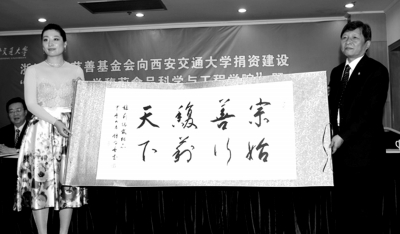 交通大学
浙 慈善基金会向西安交通大学捐资建设
学馥莉食品科学与工程学院”暨
宗始
善行
馥莉
天下